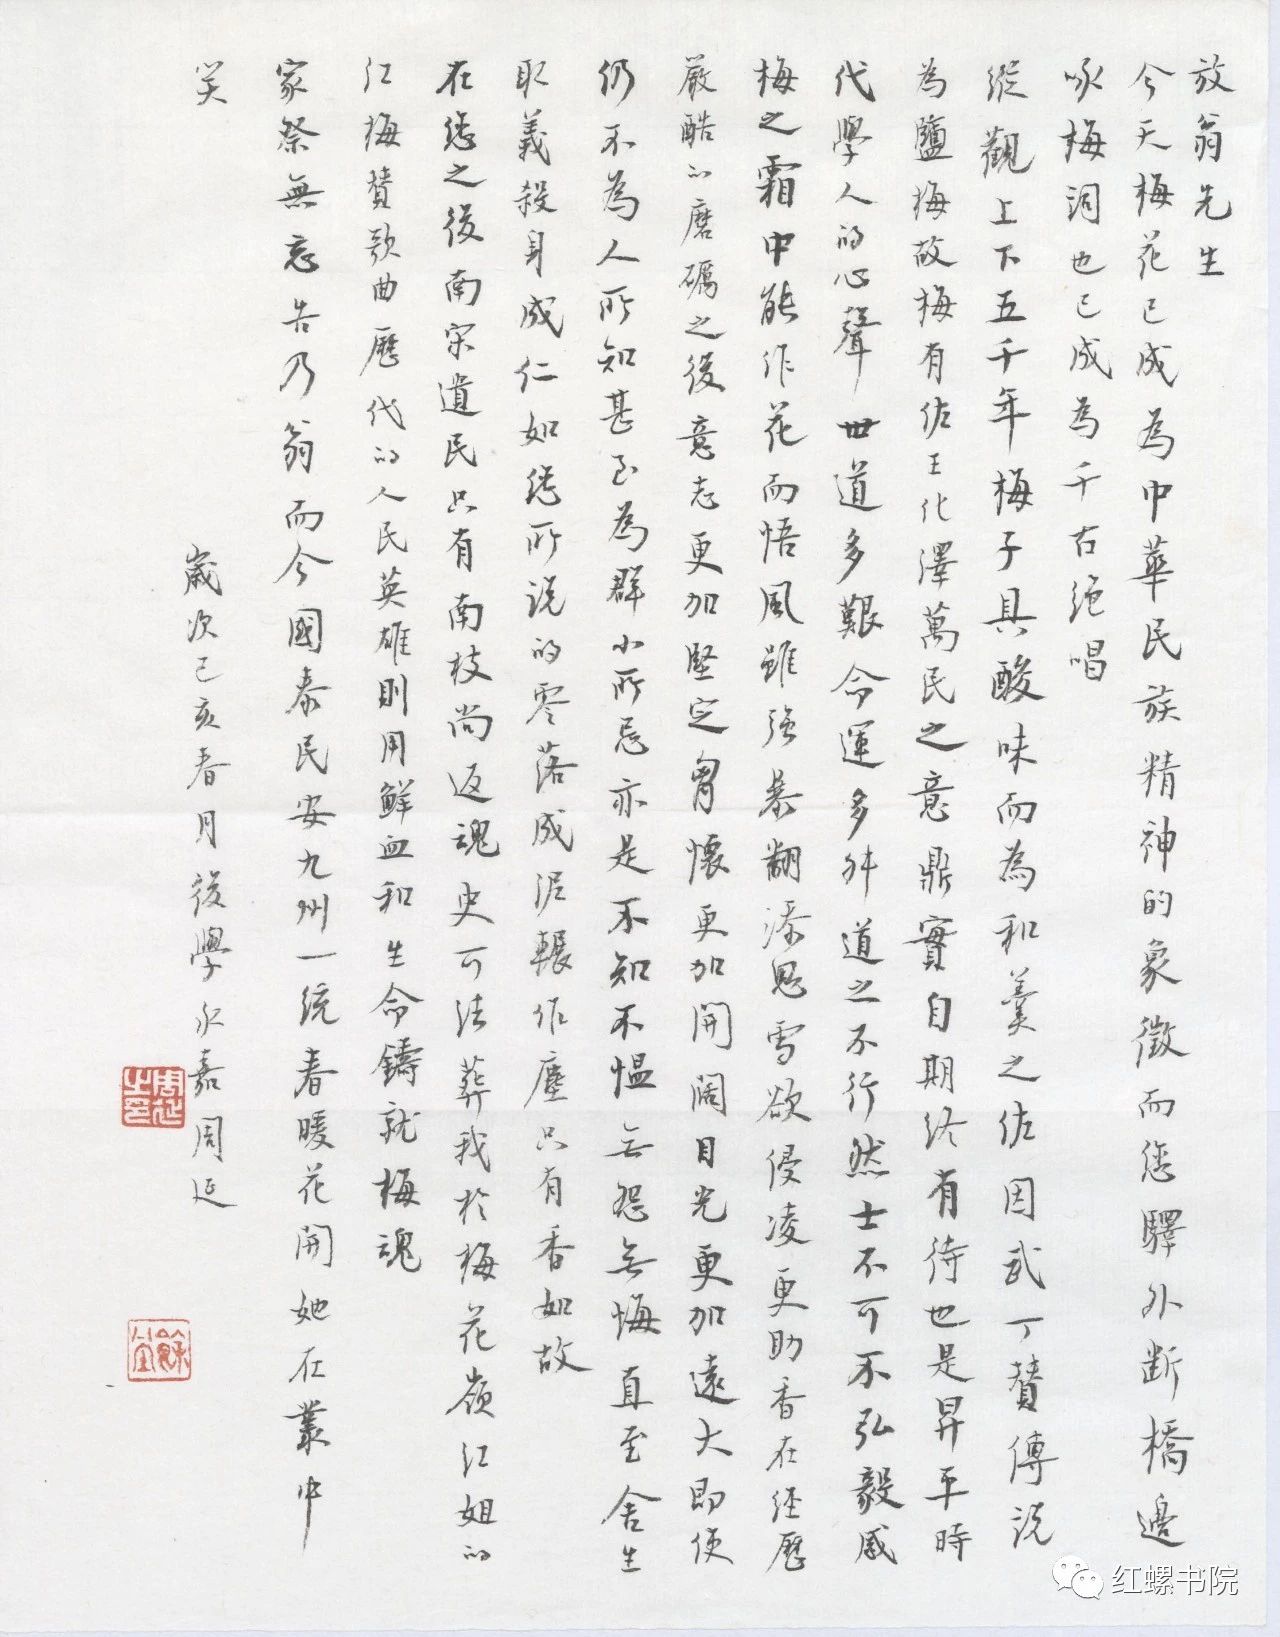 放翁先生
今天梅花已成為中華民族精神的象徵而您驛外斷橋邊
咏梅詞也已成為千古絕唱
縱觀上下五千年梅子具酸味而為和羹之佐因武丁贊傅説
為鹽梅故梅有佐王化澤萬民之意鼎實自期終有待也是昇平時
代學人的心聲世道多艱命運多舛道之不行然士不可不弘毅感
梅之霜中能作花而悟風雖強暴翻添思雪欲侵凌更助香在經歷
嚴酷的磨礪之後意志更加堅定胷懷更加開闊目光更加遠大即使
仍不為人所知甚至為群小所忌亦是不知不愠無怨無悔直至舍生
取義殺身成仁如您所说的零落成泥輾作塵只有香如故
在您之後南宋遺民只有南枝尚返魂史可法葬我於梅花嶺江姐的
紅梅贊歌曲歷代的人民英雄則用鮮血和生命鑄就梅魂
家祭無忘告乃翁而今國泰民安九州一統春暖花開她在叢中
笑
歲次己亥春月後學永嘉周延
红螺书院